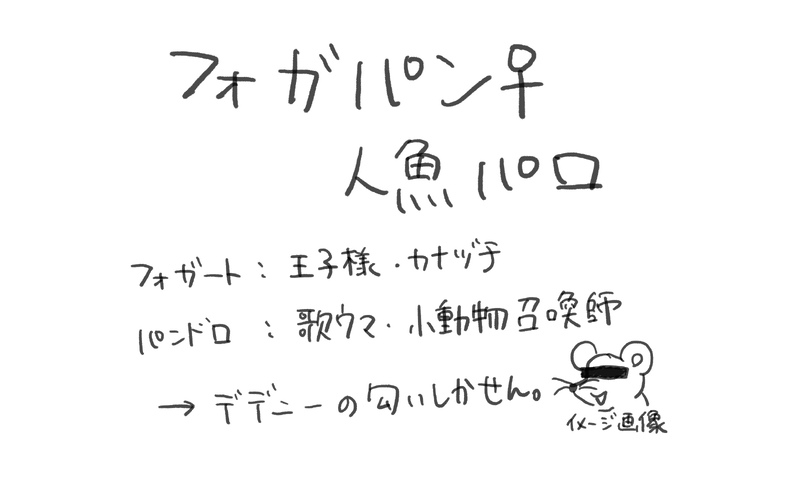 フォガパン♀
人魚パロ
フォガート：王子様・カナヅチ
パンドロ：歌ウマ・小動物召喚師
→デデニーの匂いしかせん。
イメージ画像